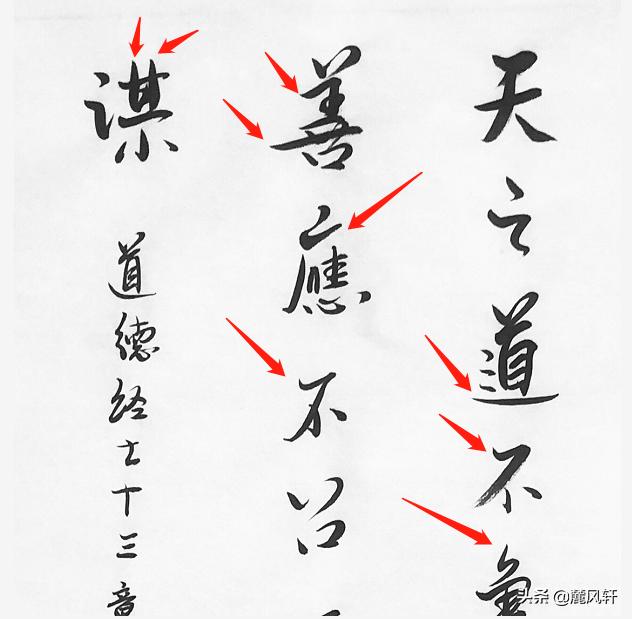 天之道不
善應不召
謀
道德经七十三章
头条 @麓风轩